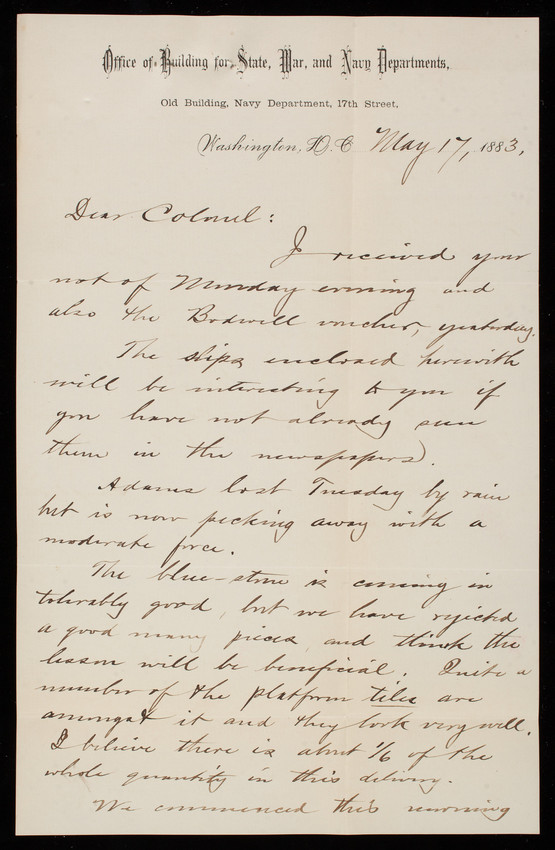 Office of Building for State, War, and Navy Departments,
Old Building, Navy Department, 17th Street,
Washington, D. C. May 17, 1883,
Dear Colonel:
I received your
not of Monday evening and
also the Bodwell voucher, yesterday.
The slips enclosed herewith
will be interesting to you if
you have not already seen
them in the newspapers.
Adams lost Tuesday by rain
but is now pecking away with a
moderate force.
The blue-stone is coming in
tolerably good, but we have rejected
a good many pieces and think the
lesson will be beneficial. Quite a
number of the platform tiles are
amongst it and they look very well.
I believe there is about 1/6 of the
whole quantity in this delivery.
We commenced this morning